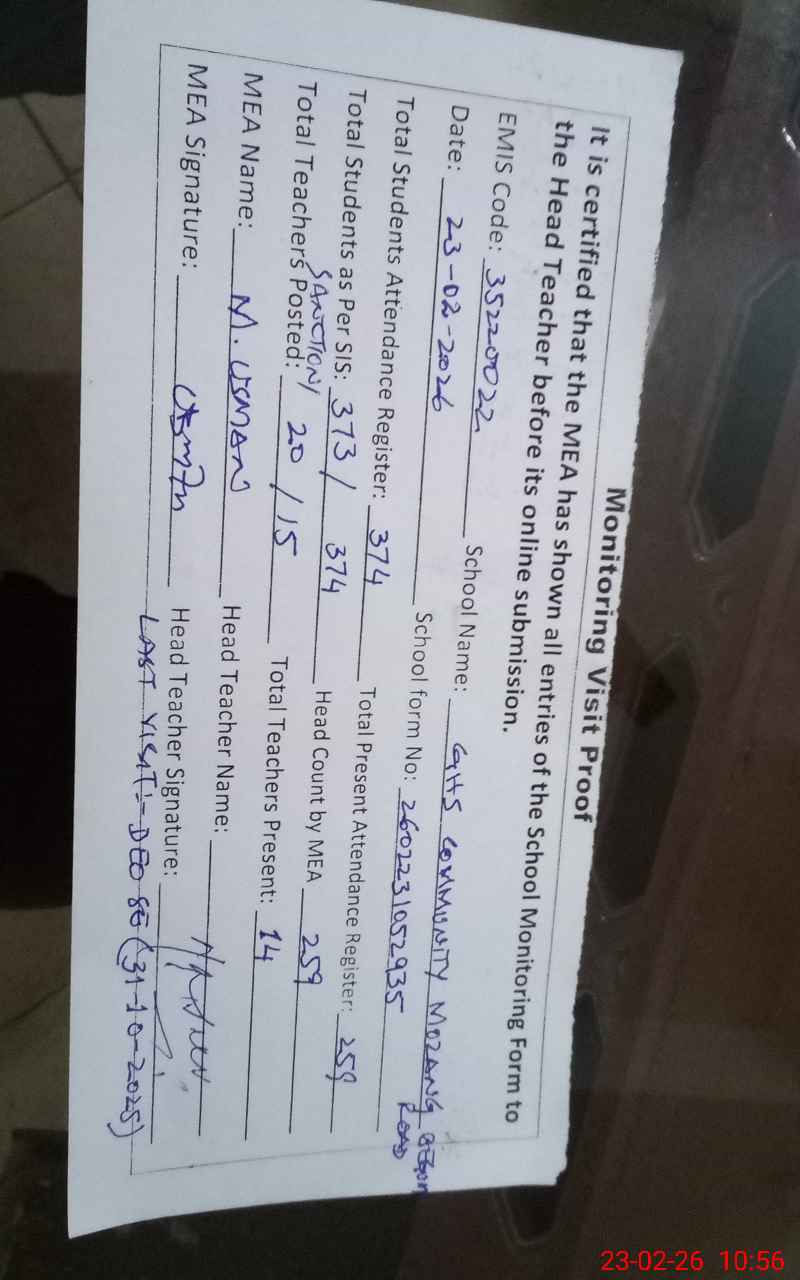 Monitoring Visit Proof
It is certified that the MEA has shown all entries of the School Monitoring Form to
the Head Teacher before its online submission.
EMIS Code: 35220022 School Name: GHS COMMUNITY MOZANG
ROAD
Date: 23-02-2026 School form No: 2602231052935
Total Students Attendance Register: 374 Total Present Attendance Register: 259
Total Students as Per SIS: 373/ 374 Head Count by MEA 259
SANCTION/
Total Teachers Posted: 20 / 15 Total Teachers Present: 14
MEA Name: M. USMAN Head Teacher Name:
MEA Signature: Head Teacher Signature:
LAST VISIT:- DEO SE (31-10-2025)
23-02-26 10:56